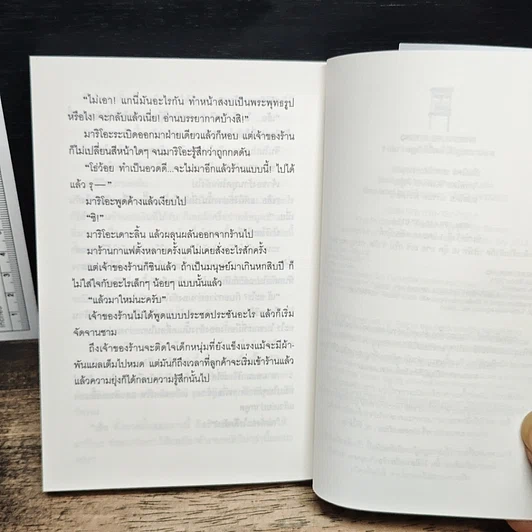 “ไม่เอา! แกนี่มันอะไรกัน ทำหน้าสงบเป็นพระพุทธรูป
หรือไง! จะกลับแล้วเนี่ย! อ่านบรรยากาศบ้างสิ!”
มาริโอะระเบิดออกมาฝ่ายเดียวแล้วก็หอบ แต่เจ้าของร้าน
ก็ไม่เปลี่ยนสีหน้าใดๆ จนมาริโอะรู้สึกว่าถูกกดดัน
“โธ่ว้อย ทำเป็นอวดดี...จะไม่มาอีกแล้วร้านแบบนี้! ไปได้
แล้ว รุ—”
มาริโอะพูดค้างแล้วเงียบไป
“ชิ!”
มาริโอะเดาะลิ้น แล้วผลุนผลันออกจากร้านไป
มาร้านกาแฟตั้งหลายครั้งแต่ไม่เคยสั่งอะไรสักครั้ง
แต่เจ้าของร้านก็ชินแล้ว ถ้าเป็นมนุษย์มาเกินหกสิบปี ก็
ไม่ใส่ใจกับอะไรเล็กๆ น้อยๆ แบบนั้นแล้ว
“แล้วมาใหม่นะครับ”
เจ้าของร้านไม่ได้พูดแบบประชดประชันอะไร แล้วก็เริ่ม
จัดจานชาม
ถึงเจ้าของร้านจะติดใจเด็กหนุ่มที่ยังแข็งแรงแม้จะมีผ้า-
พันแผลเต็มไปหมด แต่มันก็ถึงเวลาที่ลูกค้าจะเริ่มเข้าร้านแล้ว
แล้วความยุ่งก็ได้กลบความรู้สึกนั้นไป